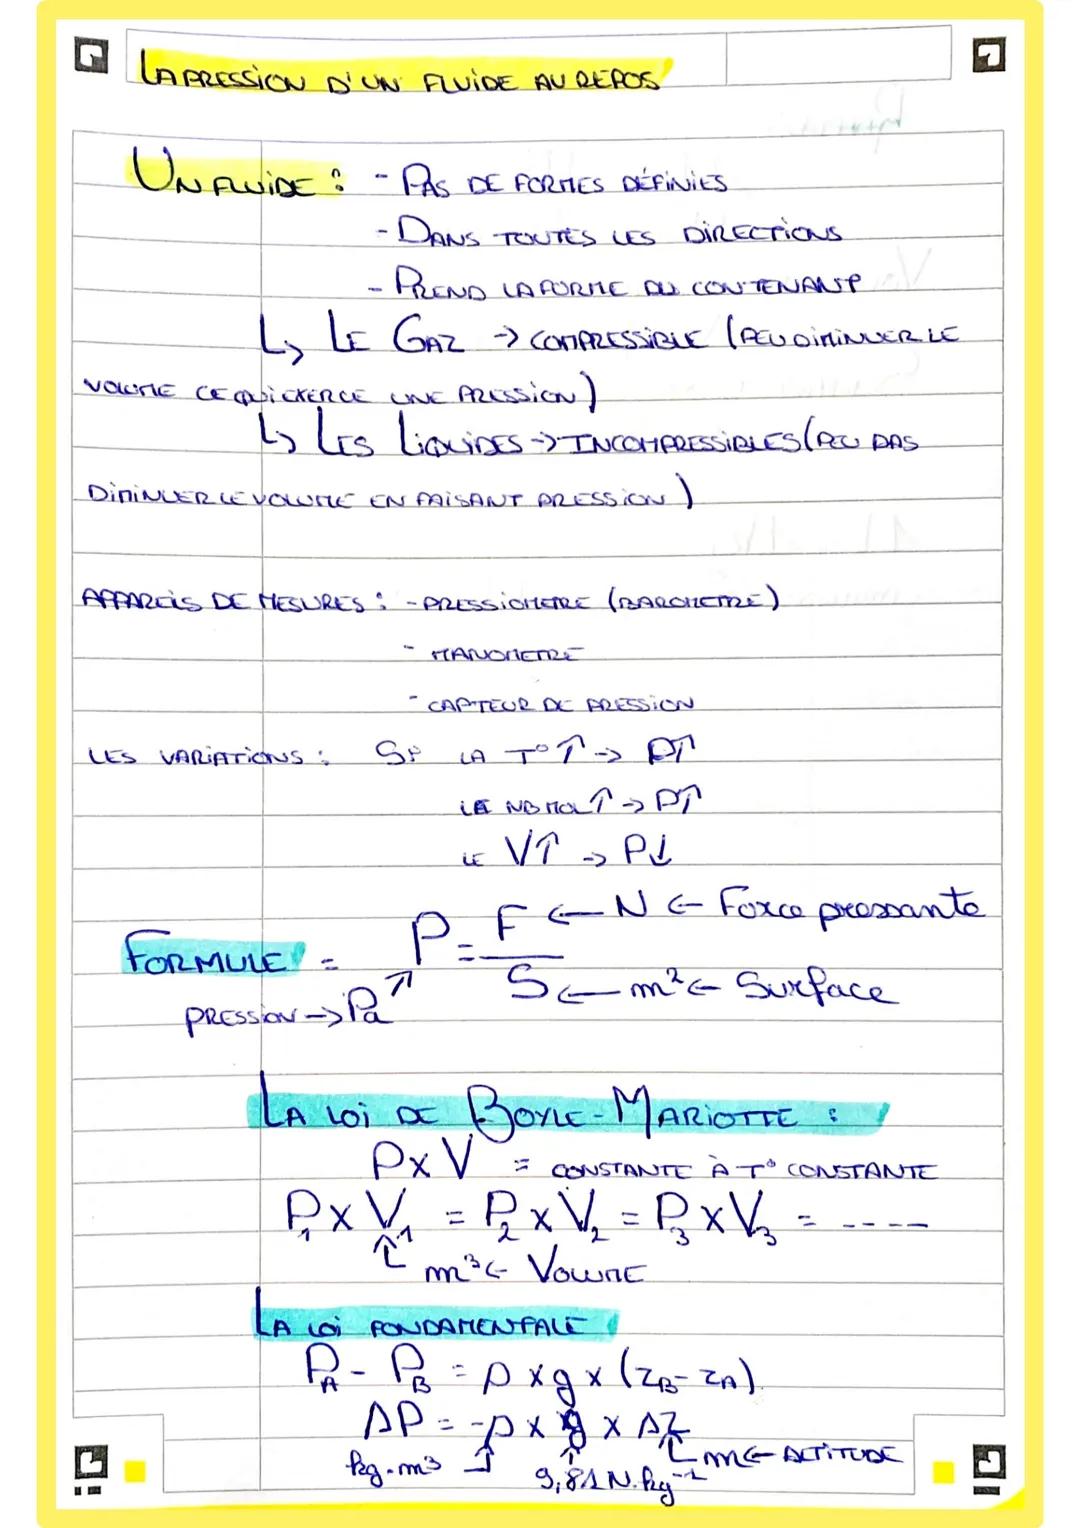 LA PRESSION D'UN FLUIDE AU REPOS
UN FLUIDE : - PAS DE FORMES DÉFINIES
- DANS TOUTES LES DIRECTIONS
- PREND LA FORME DU CONTENANT
↳ LE GAZ → COMPRESSIBLE (PEU DIMINUER LE
VOLUME CE QUI EXERCE UNE PRESSION)
↳ LES LIQUIDES → INCOMPRESSIBLES (PEU PAS
DIMINUER LE VOLUME EN FAISANT PRESSION)
APPAREILS DE MESURES : - PRESSIOMETRE (BAROMETRE)
- MANOMETRE
- CAPTEUR DE PRESSION
LES VARIATIONS : Si LA T° ↑ → P↑
LE NB MOL ↑ → P↑
LE V↑ → P↓
FORMULE = P = F ← N ← Force pressante
S ← m² ← Surface
PRESSION → Pa ↗
LA LOI DE BOYLE-MARIOTTE :
P x V = CONSTANTE À T° CONSTANTE
P₁ x V₁ = P₂ x V₂ = P₃ x V₃ = ----
m³ ← VOLUME
LA LOI FONDAMENTALE
P_A - P_B = ρ x g x (z_B - z_A)
ΔP = -ρ x g x ΔZ
kg.m³ 9,81 N.kg⁻¹ m ← ALTITUDE